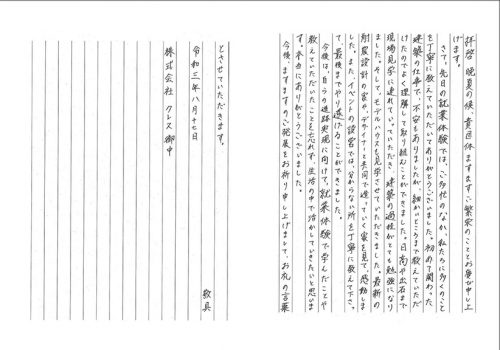 拝啓 晩夏の候、貴団体ますますご繁栄のこととお慶び申し上
げます。
さて、先日の就業体験では、ご多忙のなか、私たちに多くのこと
を丁寧に教えていただいてありがとうございました。初めて関わった
建築の仕事で、不安もありましたが、細かいところまで教えていただ
けたのでよく理解して取り組むことができました。日高や出石まで
現場見学に連れていっていただき、建築の過程がとても勉強になり
ました。そして、モデルハウスも見学させていただきました。最新の
耐震設計の家や、デパートと共同で造っていく家を見て、感動しま
した。また、イベントの設営では、分からない所を丁寧に教えて下さっ
て、最後までやり遂げることができました。
今後は、自らの進路実現に向けて、就業体験で学んだことや
教えていただいたことを忘れず、生活の中で活かしていきたいと思いま
す。本当にありがとうございました。
今後、ますますのご発展をお祈り申し上げまして、お礼の言葉
とさせていただきます。
敬具
令和三年八月十七日
株式会社 クレス御中